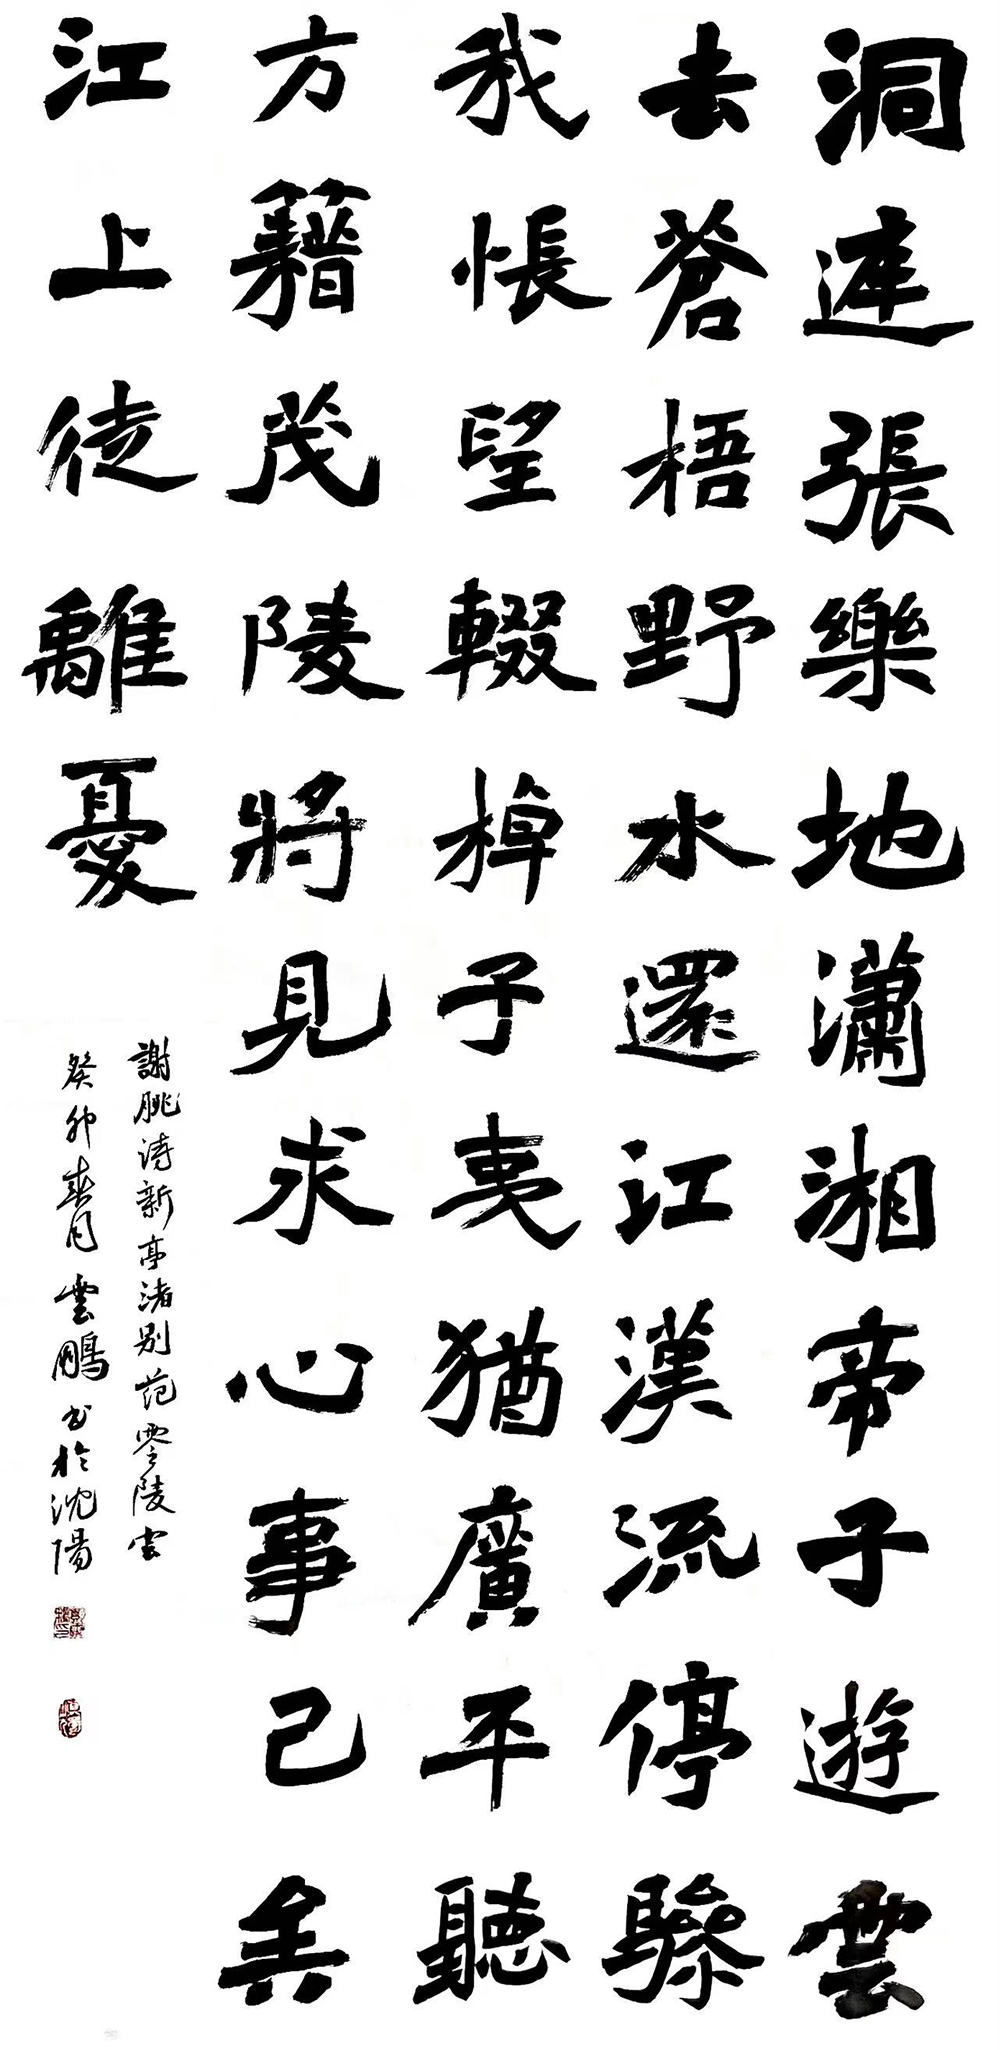 洞連張樂地瀟湘帝子遊雲
去蒼梧野水還江漢流停驂
我悵望輟棹子夷猶廣平聽
方藉茂陵將見求心事己矣
江上徒離憂
謝朓詩新亭渚別范零陵雲
癸卯春月雲鵬書於沈陽